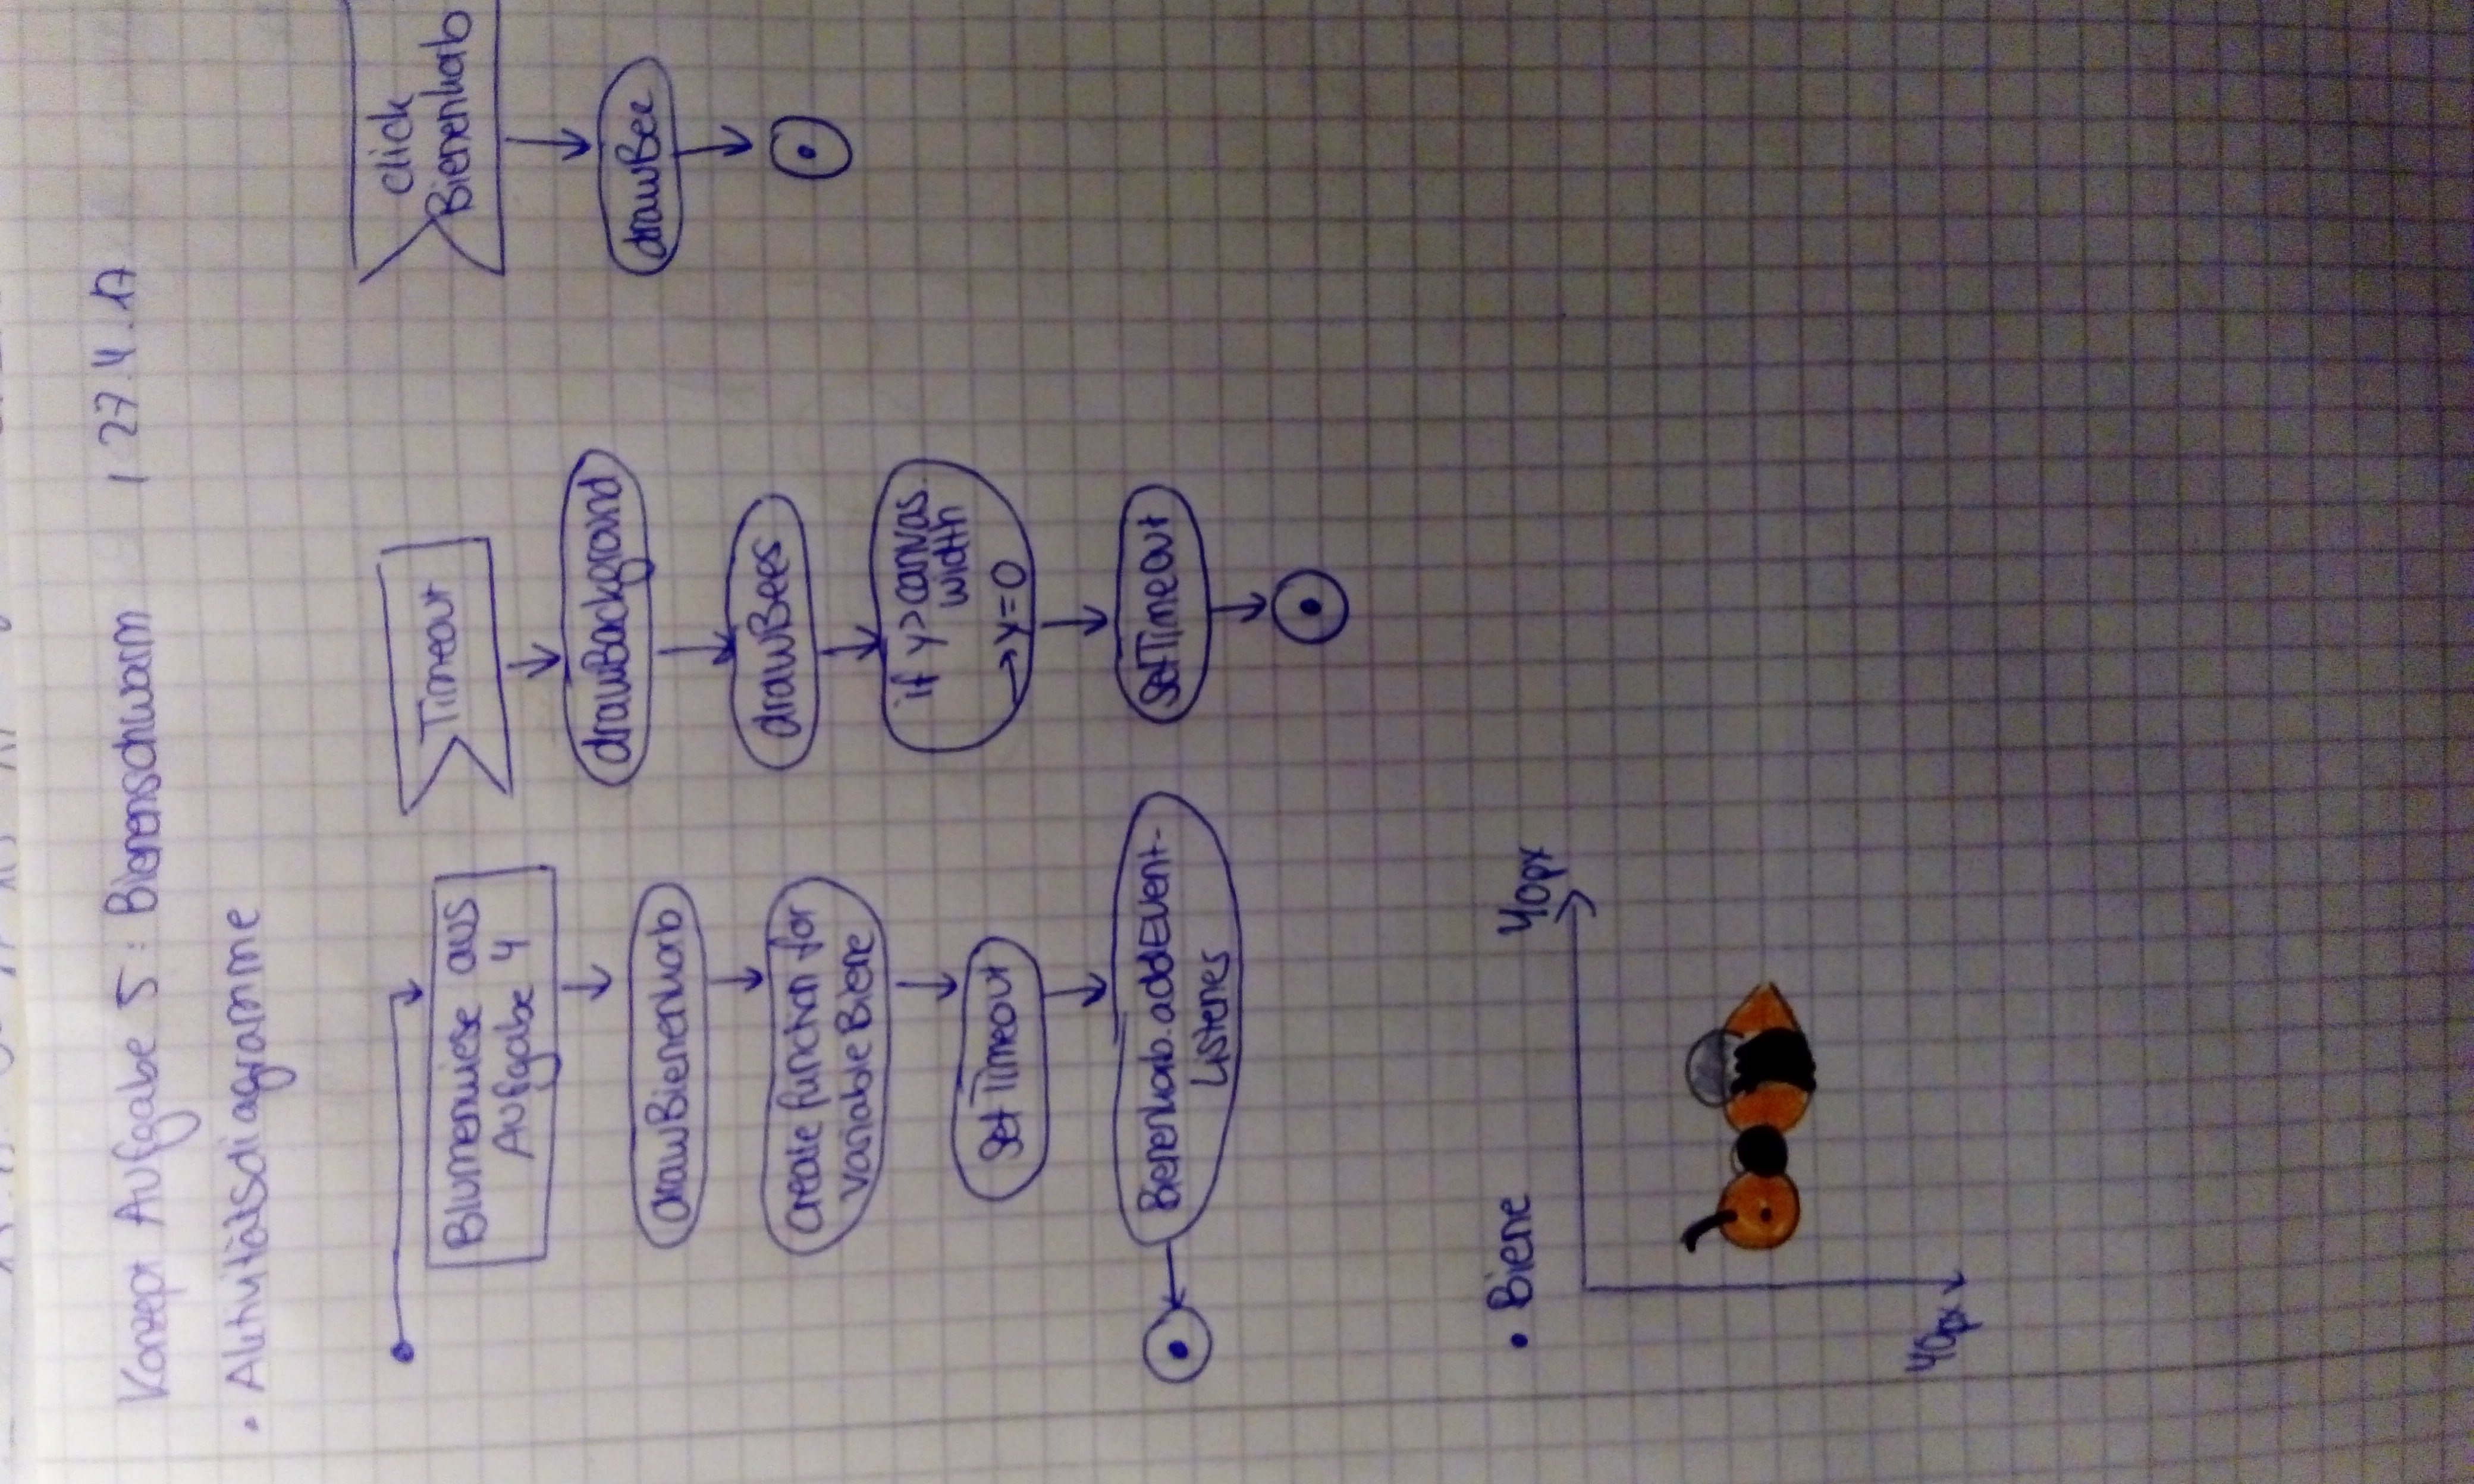 Konzept Aufgabe 5: Bienenschwarm | 27.4.17
• Aktivitätsdiagramme
Blumenwiese aus
Aufgabe 4
drawBienenkorb
create function for
variable Biene
setTimeout
Bienenkorb.addEvent-
Listener
Timeout
drawBackground
drawBees
if y>canvas.
width
→y=0
setTimeout
click
Bienenkorb
drawBee
• Biene
40px
40px